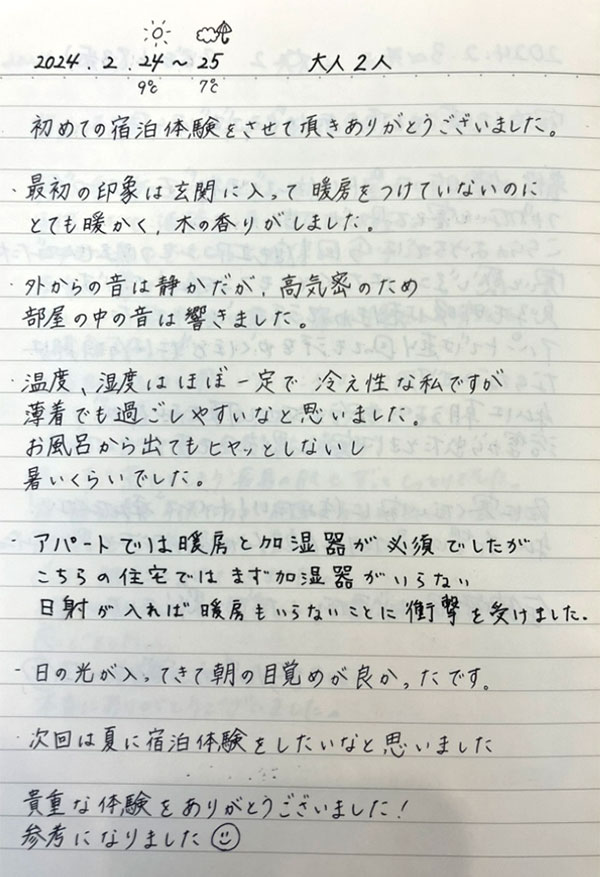 2024.2.24～25 大人2人
9℃ 7℃
初めての宿泊体験をさせて頂きありがとうございました。
・最初の印象は玄関に入って暖房をつけていないのに
とても暖かく、木の香りがしました。
・外からの音は静かだが、高気密のため
部屋の中の音は響きました。
・温度、湿度はほぼ一定で冷え性な私ですが
薄着でも過ごしやすいなと思いました。
お風呂から出てもヒヤッとしないし
暑いくらいでした。
・アパートでは暖房と加湿器が必須でしたが
こちらの住宅ではまず加湿器がいらない
日射が入れば暖房もいらないことに衝撃を受けました。
・日の光が入ってきて朝の目覚めが良かったです。
・次回は夏に宿泊体験をしたいなと思いました
貴重な体験をありがとうございました！
参考になりました☺